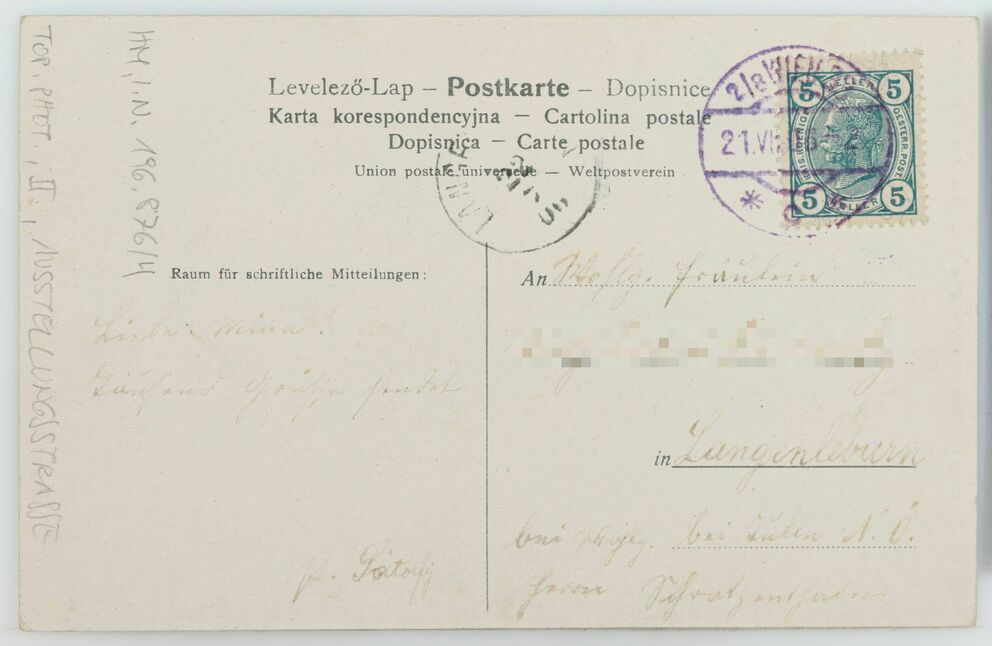 Levelező-Lap – Postkarte – Dopisnice
Karta korespondencyjna – Cartolina postale
Dopisnica – Carte postale
Union postale universelle – Weltpostverein
2/8 WIEN
21.VII
5 HELLER 5
KAIS. KOENIGL. OESTERR. POST.
5 HELLER 5
Raum für schriftliche Mitteilungen:
Liebe Mina!
Tausend Grüße sendet
An Wohlg. Fräulein
in Langenlebarn
bei Tulln N. Ö.
bei Wohlg.
Herrn Schratzenthaler
HM, I. N. 196.876/4
TOP. PHOT., II: 1, AUSSTELLUNGSSTRASSE